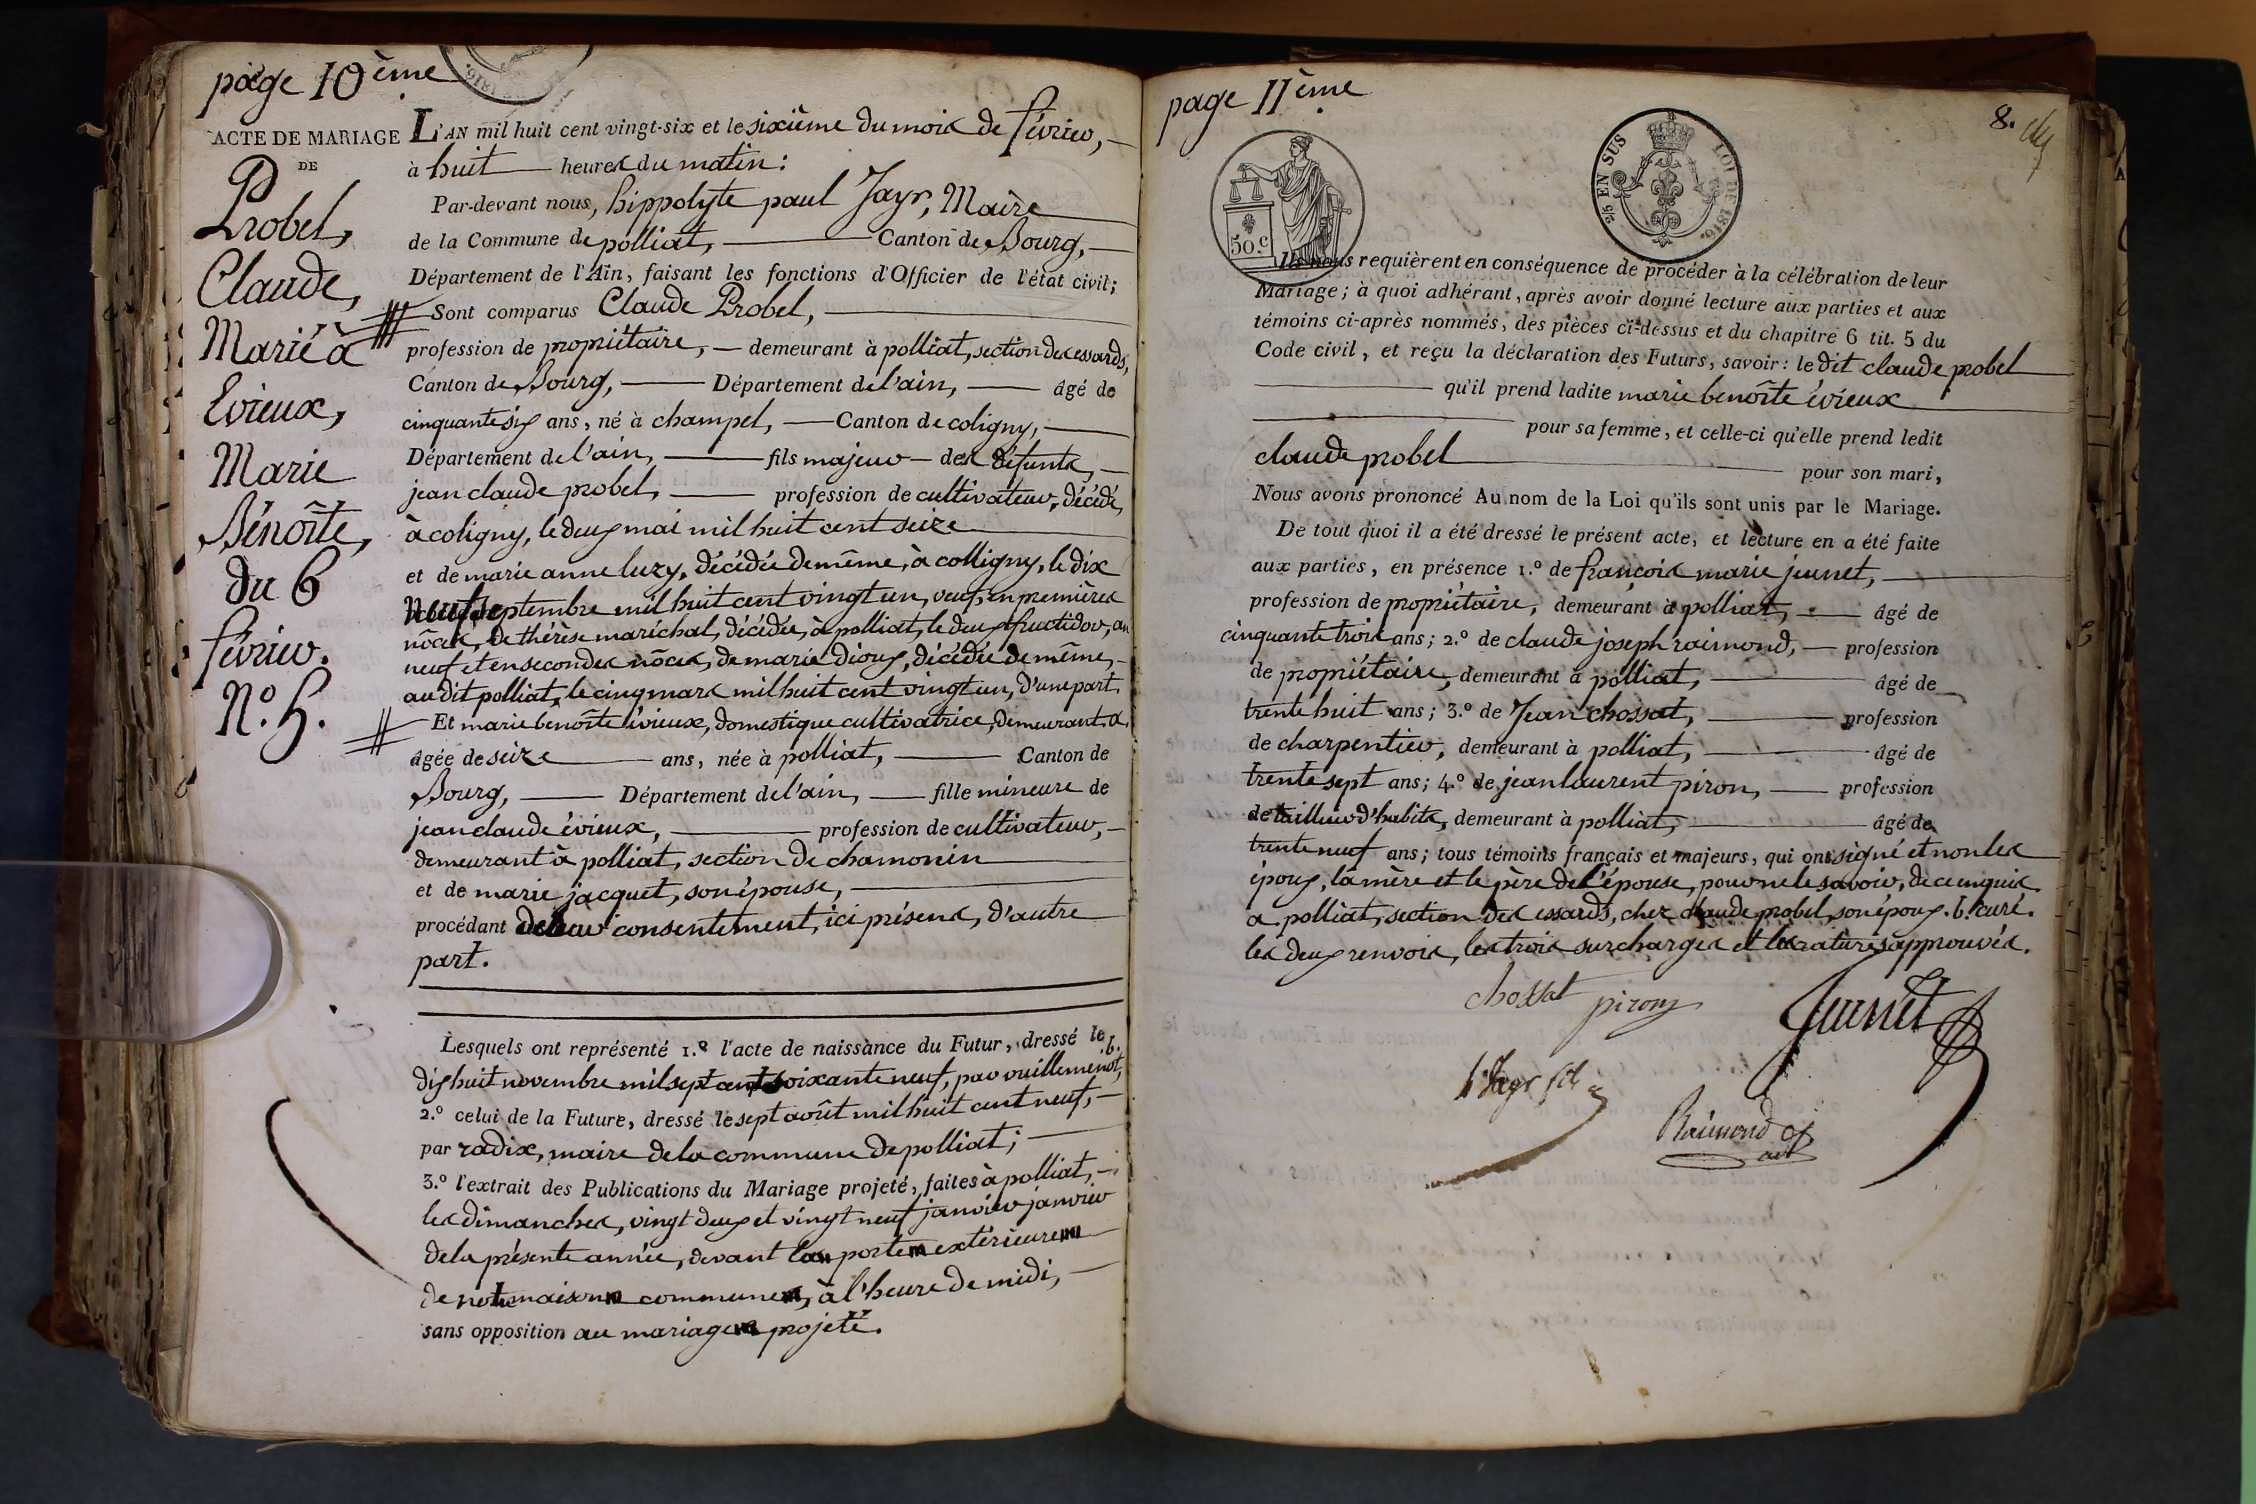 page 10ème
ACTE DE MARIAGE
DE
Probel,
Claude,
Marié à
Evieux,
Marie
Bénoîte,
du 6
février.
N.º 5.
L'AN mil huit cent vingt-six et le sixième du mois de février,
à huit heures du matin :
Par-devant nous, hippolyte paul Jayr, Maire
de la Commune de polliat, Canton de Bourg,
Département de l'Ain, faisant les fonctions d'Officier de l'état civil;
Sont comparus Claude Probel,
profession de propriétaire, demeurant à polliat, section des essards,
Canton de Bourg, Département de l'ain, âgé de
cinquante six ans, né à champel, Canton de coligny,
Département de l'ain, fils majeur des défunts,
jean claude probel, profession de cultivateur, décédé,
à coligny, le deux mai mil huit cent seize
et de marie anne luzy, décédée de même, à colligny, le dix
neuf septembre mil huit cent vingt un, veuf, en premières
nôces, de thérèse maréchal, décédée, à polliat, le deux fructidor, an
neuf et en secondes nôces, de marie dioux, décédée de même,
au dit polliat, le cinq mars mil huit cent vingt un, d'une part.
Et marie benoîte évieux, domestique cultivatrice, demeurant à
âgée de seize ans, née à polliat, Canton de
Bourg, Département de l'ain, fille mineure de
jean claude évieux, profession de cultivateur,
demeurant à polliat, section de chamonin
et de marie jacquet, son épouse,
procédant de leur consentement, ici présens, d'autre
part.
Lesquels ont représenté 1.º l'acte de naissance du Futur, dressé le
dix huit novembre mil sept cent soixante neuf, par vuillemenot, b.
2.º celui de la Future, dressé le sept août mil huit cent neuf,
par radix, maire de la commune de polliat;
3.º l'extrait des Publications du Mariage projeté, faites à polliat,
les dimanches, vingt deux et vingt neuf janvier janvier
de la présente année, devant la porte extérieure
de notre maison commune, à l'heure de midi,
sans opposition au mariage projeté.
page 11ème
8.
50.c
25 EN SUS
LOI DE 1816.
Ils nous requièrent en conséquence de procéder à la célébration de leur
Mariage; à quoi adhérant, après avoir donné lecture aux parties et aux
témoins ci-après nommés, des pièces ci-dessus et du chapitre 6 tit. 5 du
Code civil, et reçu la déclaration des Futurs, savoir : le dit claude probel
qu'il prend ladite marie benoîte évieux
pour sa femme, et celle-ci qu'elle prend ledit
claude probel pour son mari,
Nous avons prononcé Au nom de la Loi qu'ils sont unis par le Mariage.
De tout quoi il a été dressé le présent acte, et lecture en a été faite
aux parties, en présence 1.º de françois marie jeunet,
profession de propriétaire, demeurant à polliat, âgé de
cinquante trois ans; 2.º de claude joseph raimond, profession
de propriétaire, demeurant à polliat, âgé de
trente huit ans; 3.º de Jean chossat, profession
de charpentier, demeurant à polliat, âgé de
trente sept ans; 4.º de jean laurent piron, profession
de tailleur d'habits, demeurant à polliat, âgé de
trente neuf ans; tous témoins français et majeurs, qui ont signé et non les
époux, la mère et le père de l'épouse, pour ne le savoir, de ce enquis.
a polliat, section des essards, chez claude probel, son époux. b. curé.
les deux renvois, les trois surcharges et les ratures approuvés.
chossat piron Jeunet
Jayr
Raimond